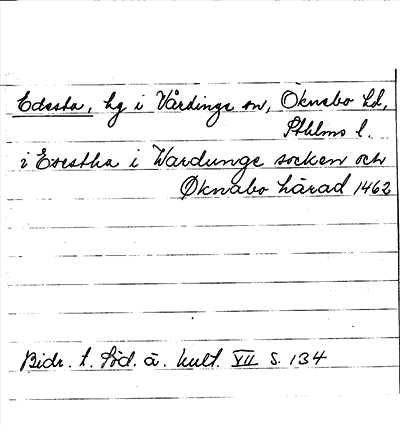 Edesta, hg i Vårdinge sn, Öknebo hd,
Sthlms l.
i Edestha i Wardunge socken och
Øknabo härad 1462
Bidr. t. Söd. ä. kult. VII s. 134